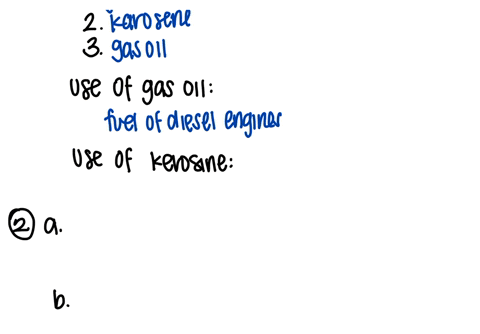 2. karosene
3. gas oil
use of gas oil:
fuel of diesel engines
use of kerosine:
② a.
b.